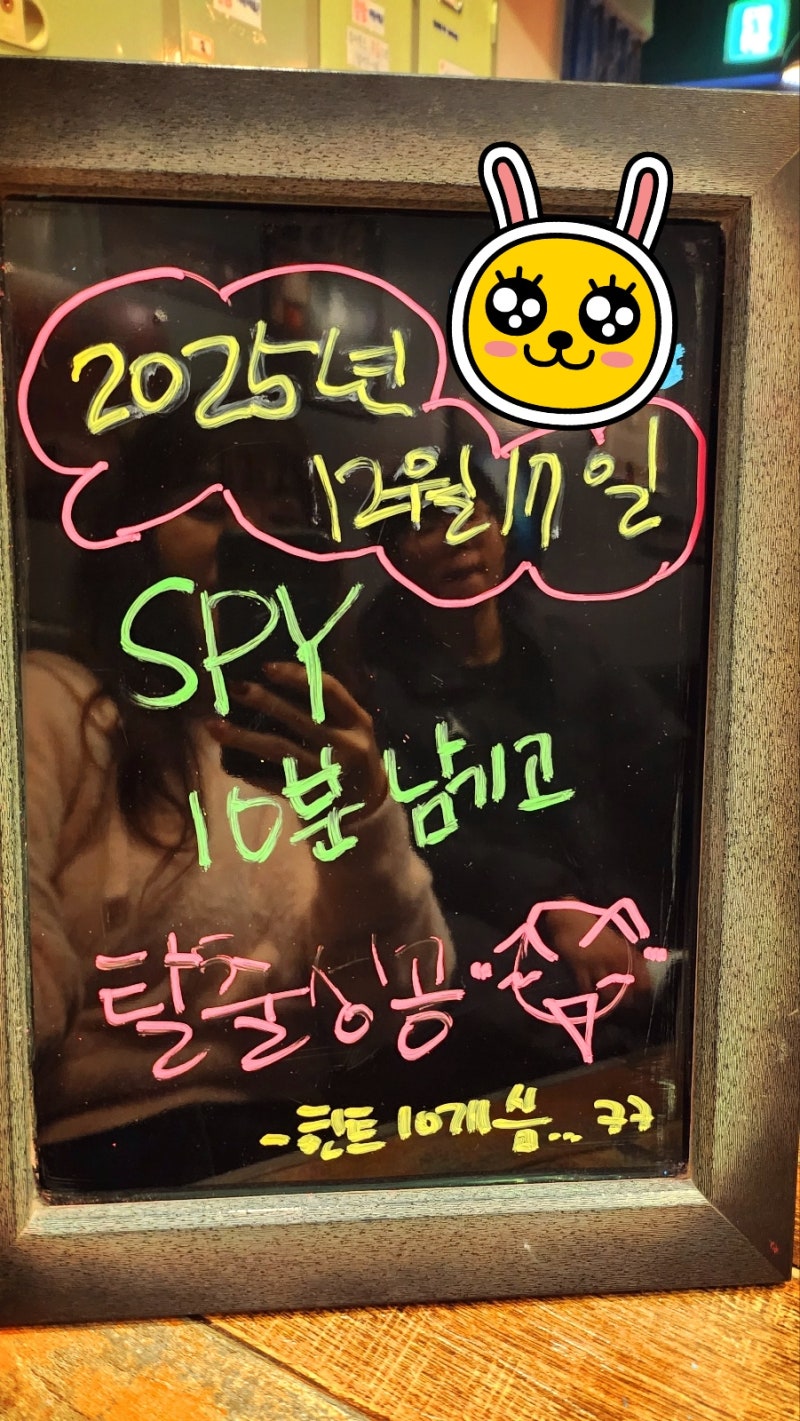 2025년
12월 17일
SPY
10분 남기고
탈출성공
-힌트 10개 씀.. ㅋㅋ